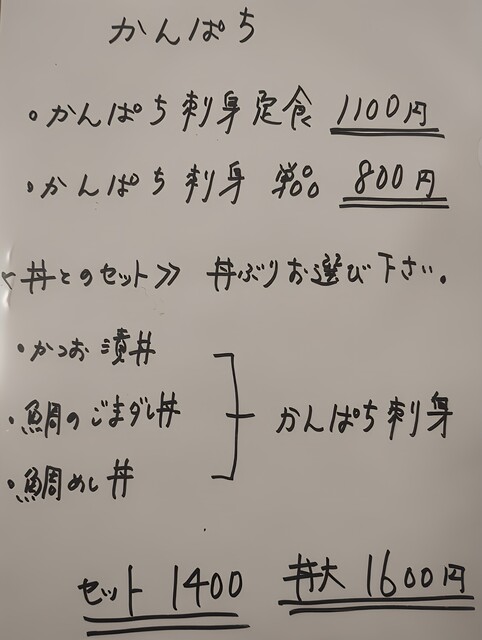 かんぱち
・かんぱち刺身定食 1100円
・かんぱち刺身 単品 800円
<丼とのセット≫ 丼ぶりお選び下さい。
・かつお漬丼
・鯛のごまダレ丼 かんぱち刺身
・鯛めし丼
セット 1400 丼大 1600円